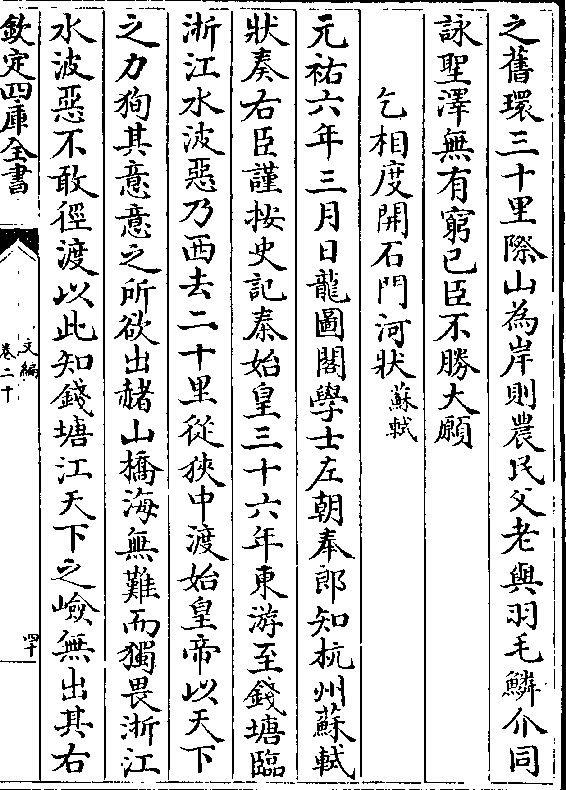 之舊環三十里際山為岸則農民父老與羽毛鱗介同
詠聖澤無有窮已臣不勝大願
乞相度開石門河狀蘇軾
元祐六年三月日龍圖閣學士左朝奉郎知杭州蘇軾
狀奏右臣謹按史記秦始皇三十六年東游至錢塘臨
浙江水波惡乃西去二十里從狹中渡始皇帝以天下
之力狥其意意之所欲出赭山橋海無難而獨畏浙江
水波惡不敢徑渡以此知錢塘江天下之嶮無出其右
欽定四庫全書
文編
卷二十
四十